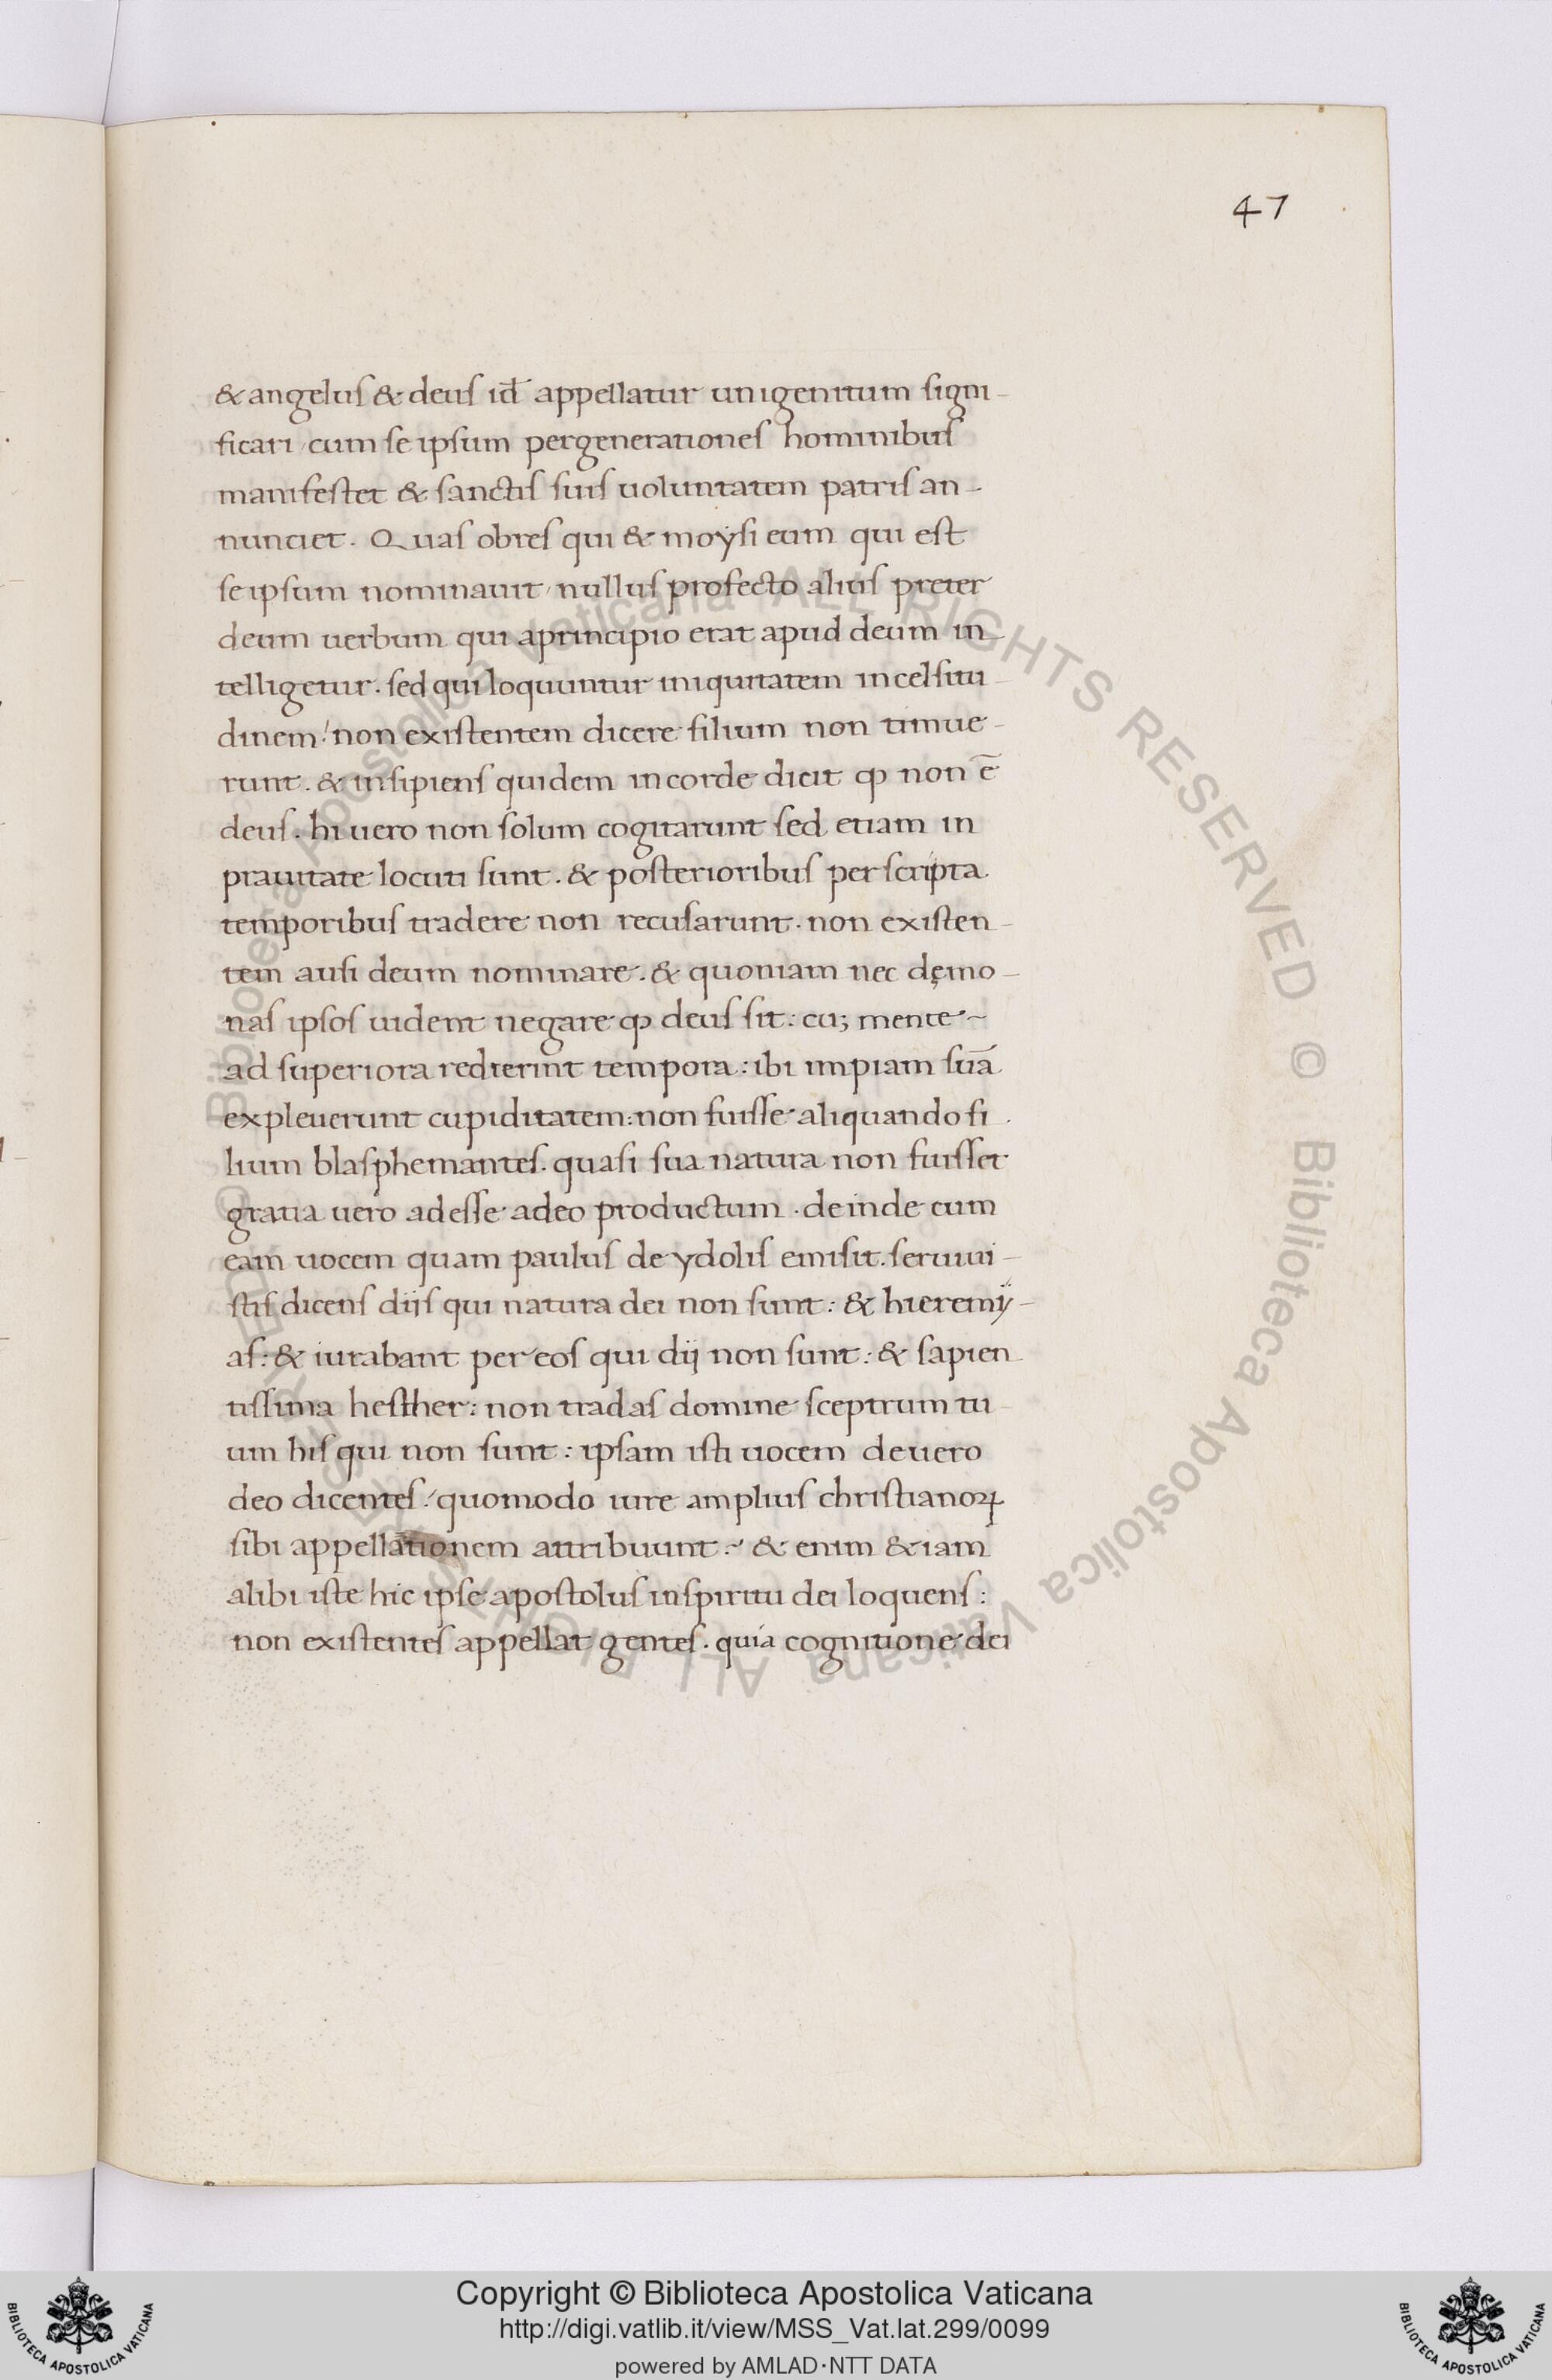 47
& angelus & deus id̅ appellatur unigenitum signi-
ficari, cum se ipsum pergenerationes hominibus
manifestet & sanctis suis uoluntatem patris an-
nunciet. Quas obres qui & moysi eum qui est
se ipsum nominauit, nullus profecto alius preter
deum uerbum qui aprincipio erat apud deum in-
telligetur. sed qui loquuntur iniquitatem incelsitu-
dinem! non existentem dicere filium non timue-
runt. & insipiens quidem incorde dicit ꝙ non e̅
deus. hi uero non solum cogitarunt sed etiam in
prauitate locuti sunt. & posterioribus per scripta
temporibus tradere non recusarunt. non existen-
tem ausi deum nominare. & quoniam nec dęmo-
nas ipsos uident negare ꝙ deus sit: cu; mente ~
ad superiora redierint tempora: ibi impiam sua̅
expleuerunt cupiditatem: non fuisse aliquando fi-
lium blasphemantes. quasi sua natura non fuisset
gratia uero adesse adeo productum. deinde cum
eam uocem quam paulus de ydolis emisit. seruiui-
stis dicens dijs qui natura dei non sunt: & hieremÿ-
as: & iurabant per eos qui dij non sunt: & sapien-
tissima hesther: non tradas domine sceptrum tu-
um his qui non sunt: ipsam isti uocem de uero
deo dicentes! quomodo iure amplius christianoꝝ
sibi appellationem attribuunt:~ & enim & iam
alibi iste hic ipse apostolus inspiritu dei loquens:
non existentes appellat gentes. quia cognitione dei
Biblioteca Apostolica Vaticana ALL RIGHTS RESERVED © Biblioteca Apostolica Vaticana ALL RIGHTS RESERVED ©
Copyright © Biblioteca Apostolica Vaticana
http://digi.vatlib.it/view/MSS_Vat.lat.299/0099
powered by AMLAD·NTT DATA
BIBLIOTECA APOSTOLICA VATICANA
BIBLIOTECA APOSTOLICA VATICANA